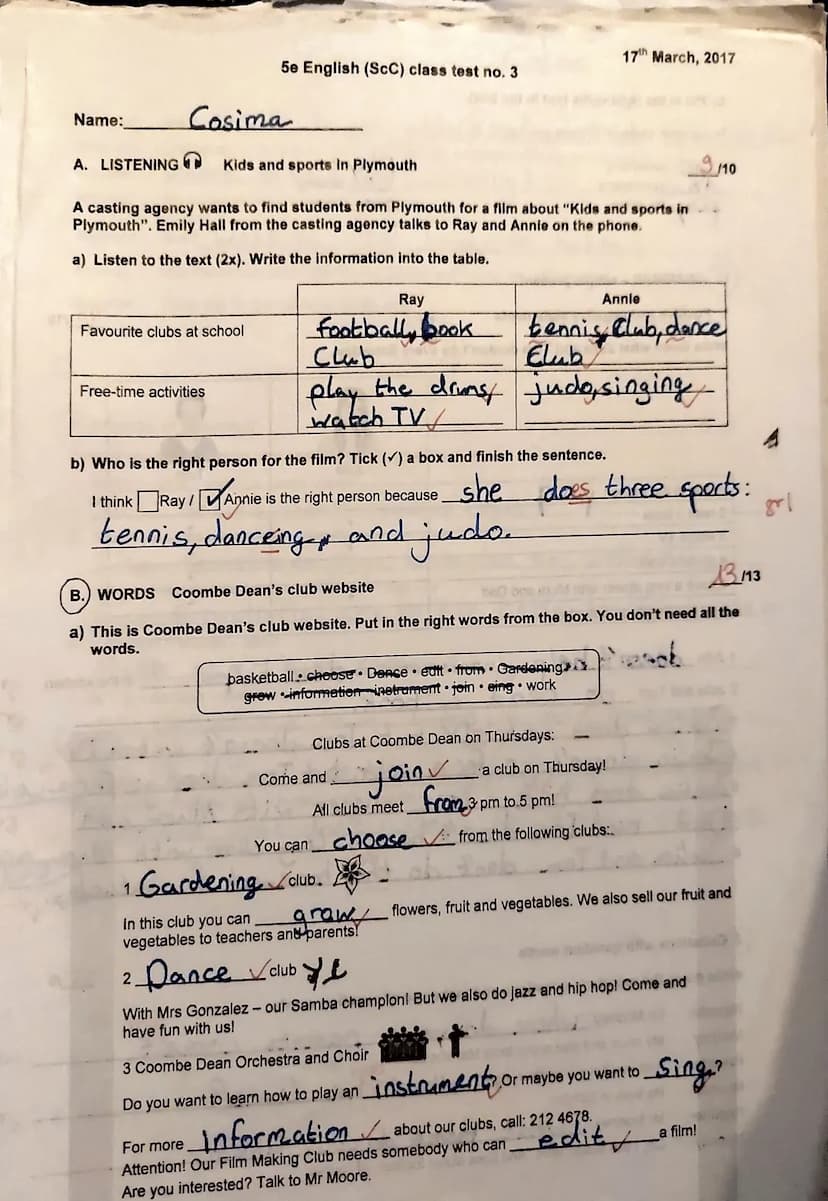 5e English (ScC) class test no. 3
17th March, 2017
Name: Cosima
A. LISTENING Kids and sports in Plymouth 9/10
A casting agency wants to find students from Plymouth for a film about "Kids and sports in
Plymouth". Emily Hall from the casting agency talks to Ray and Annie on the phone.
a) Listen to the text (2x). Write the information into the table.
Ray Annie
Favourite clubs at school football, book tennis, Club, dance
Club Club
Free-time activities play the drums, judo, singing
watch TV
b) Who is the right person for the film? Tick (✓) a box and finish the sentence.
I think Ray / ✓ Annie is the right person because she does three sports:
gr
tennis, danceing, and judo.
B. WORDS Coombe Dean's club website 13/13
a) This is Coombe Dean's club website. Put in the right words from the box. You don't need all the
words.
basketball • choose • Dance • edit • from • Gardening •
grow • information • instrument • join • sing • work
Clubs at Coombe Dean on Thursdays:
Come and join a club on Thursday!
All clubs meet from 3 pm to 5 pm!
You can choose from the following clubs:
1 Gardening club.
In this club you can grow flowers, fruit and vegetables. We also sell our fruit and
vegetables to teachers and parents!
2 Dance club
With Mrs Gonzalez – our Samba champion! But we also do jazz and hip hop! Come and
have fun with us!
3 Coombe Dean Orchestra and Choir
Do you want to learn how to play an instrument? Or maybe you want to Sing?
For more information about our clubs, call: 212 4678.
Attention! Our Film Making Club needs somebody who can edit a film!
Are you interested? Talk to Mr Moore.